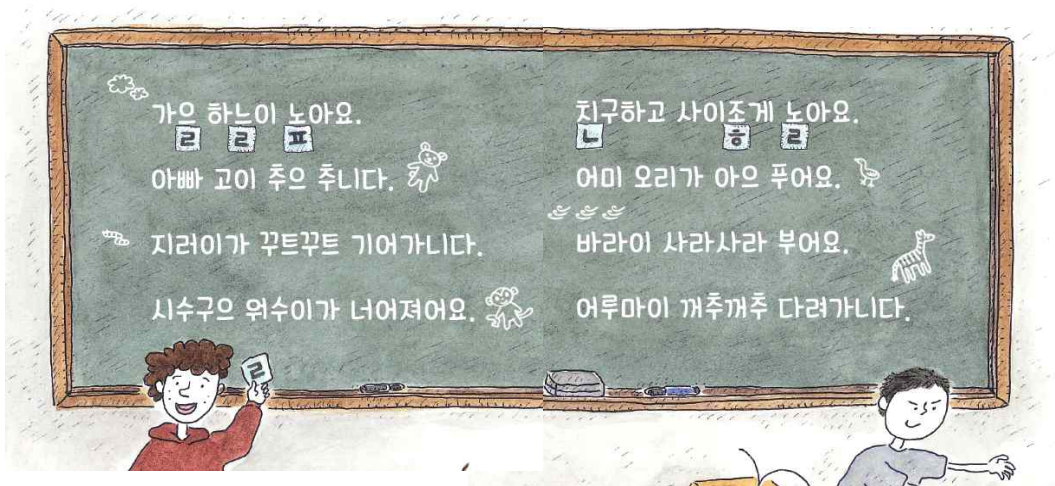 가으 하느이 노아요.
ㄹ ㄹ ㅍ
아빠 고이 추으 추니다.
지러이가 꾸트꾸트 기어가니다.
시수구으 워수이가 너어져어요.
ㄹ
치구하고 사이조게 노아요.
ㄴ ㅎ ㄹ
어미 오리가 아으 푸어요.
바라이 사라사라 부어요.
어루마이 꺼추꺼추 다려가니다.